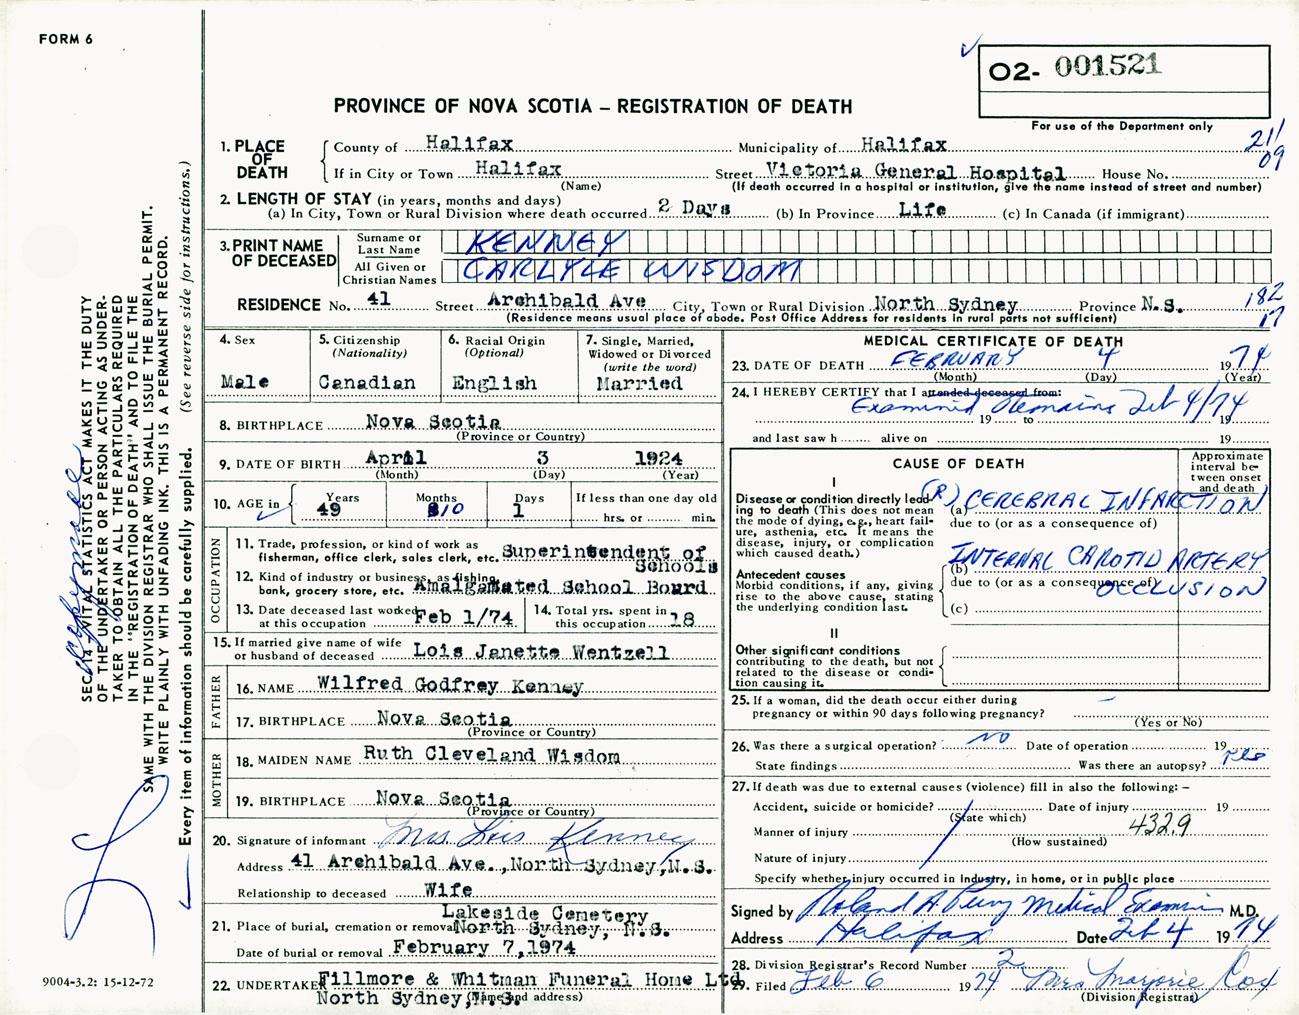 FORM 6
O2- 001521
For use of the Department only
PROVINCE OF NOVA SCOTIA – REGISTRATION OF DEATH
211
09
1. PLACE OF DEATH
County of Halifax Municipality of Halifax
If in City or Town Halifax Street Victoria General Hospital House No.
(Name) (If death occurred in a hospital or institution, give the name instead of street and number)
2. LENGTH OF STAY (in years, months and days)
(a) In City, Town or Rural Division where death occurred 2 Days (b) In Province Life (c) In Canada (if immigrant)
3. PRINT NAME OF DECEASED
Surname or Last Name KENNEY
All Given or Christian Names CARLYLE WISDOM
RESIDENCE No. 41 Street Archibald Ave City, Town or Rural Division North Sydney Province N.S.
(Residence means usual place of abode. Post Office Address for residents in rural parts not sufficient)
182
17
4. Sex
Male
5. Citizenship
(Nationality)
Canadian
6. Racial Origin
(Optional)
English
7. Single, Married,
Widowed or Divorced
(write the word)
Married
8. BIRTHPLACE Nova Scotia
(Province or Country)
9. DATE OF BIRTH April 3 1924
(Month) (Day) (Year)
10. AGE in Years Months Days If less than one day old
49 10 1 hrs. or min.
OCCUPATION
11. Trade, profession, or kind of work as
fisherman, office clerk, sales clerk, etc. Superintendent of
Schools
12. Kind of industry or business, as fishing,
bank, grocery store, etc. Amalgamated School Board
13. Date deceased last worked
at this occupation Feb 1/74
14. Total yrs. spent in
this occupation 18
15. If married give name of wife
or husband of deceased Lois Janette Wentzell
FATHER
16. NAME Wilfred Godfrey Kenney
17. BIRTHPLACE Nova Scotia
(Province or Country)
MOTHER
18. MAIDEN NAME Ruth Cleveland Wisdom
19. BIRTHPLACE Nova Scotia
(Province or Country)
20. Signature of informant Mrs. Lois Kenney
Address 41 Archibald Ave.,North Sydney,N.S.
Relationship to deceased Wife
Lakeside Cemetery
21. Place of burial, cremation or removal North Sydney, N.S.
Date of burial or removal February 7,1974
22. UNDERTAKER Fillmore & Whitman Funeral Home Ltd
North Sydney,N.S.
(Name and address)
MEDICAL CERTIFICATE OF DEATH
23. DATE OF DEATH FEBRUARY 4 1974
(Month) (Day) (Year)
24. I HEREBY CERTIFY that I attended deceased from:
Examined Remains Feb 4/74
19 to 19
and last saw h alive on 19
CAUSE OF DEATH
Approximate interval between onset and death
I
Disease or condition directly leading to death (This does not mean the mode of dying, e.g., heart failure, asthenia, etc. It means the disease, injury, or complication which caused death.)
(a) (R) CEREBRAL INFARCTION
due to (or as a consequence of)
Antecedent causes
Morbid conditions, if any, giving rise to the above cause, stating the underlying condition last.
(b) INTERNAL CAROTID ARTERY
due to (or as a consequence of) OCCLUSION
(c)
II
Other significant conditions
contributing to the death, but not related to the disease or condition causing it.
25. If a woman, did the death occur either during
pregnancy or within 90 days following pregnancy?
(Yes or No)
26. Was there a surgical operation? NO Date of operation 19
State findings Was there an autopsy? Yes
27. If death was due to external causes (violence) fill in also the following: –
Accident, suicide or homicide? Date of injury 19
(State which)
Manner of injury 4329
(How sustained)
Nature of injury
Specify whether injury occurred in Industry, in home, or in public place
Signed by Roland A Perry Medical Examiner M.D.
Address Halifax Date Feb 4 1974
28. Division Registrar's Record Number 2
29. Filed Feb 6 1974 Mrs Marjorie Cox
(Division Registrar)
SEC. 14 – VITAL STATISTICS ACT MAKES IT THE DUTY
OF THE UNDERTAKER OR PERSON ACTING AS UNDER-
TAKER TO OBTAIN ALL THE PARTICULARS REQUIRED
IN THE "REGISTRATION OF DEATH" AND TO FILE THE
SAME WITH THE DIVISION REGISTRAR WHO SHALL ISSUE THE BURIAL PERMIT.
WRITE PLAINLY WITH UNFADING INK. THIS IS A PERMANENT RECORD.
Every item of information should be carefully supplied. (See reverse side for instructions.)
9004-3.2: 15-12-72